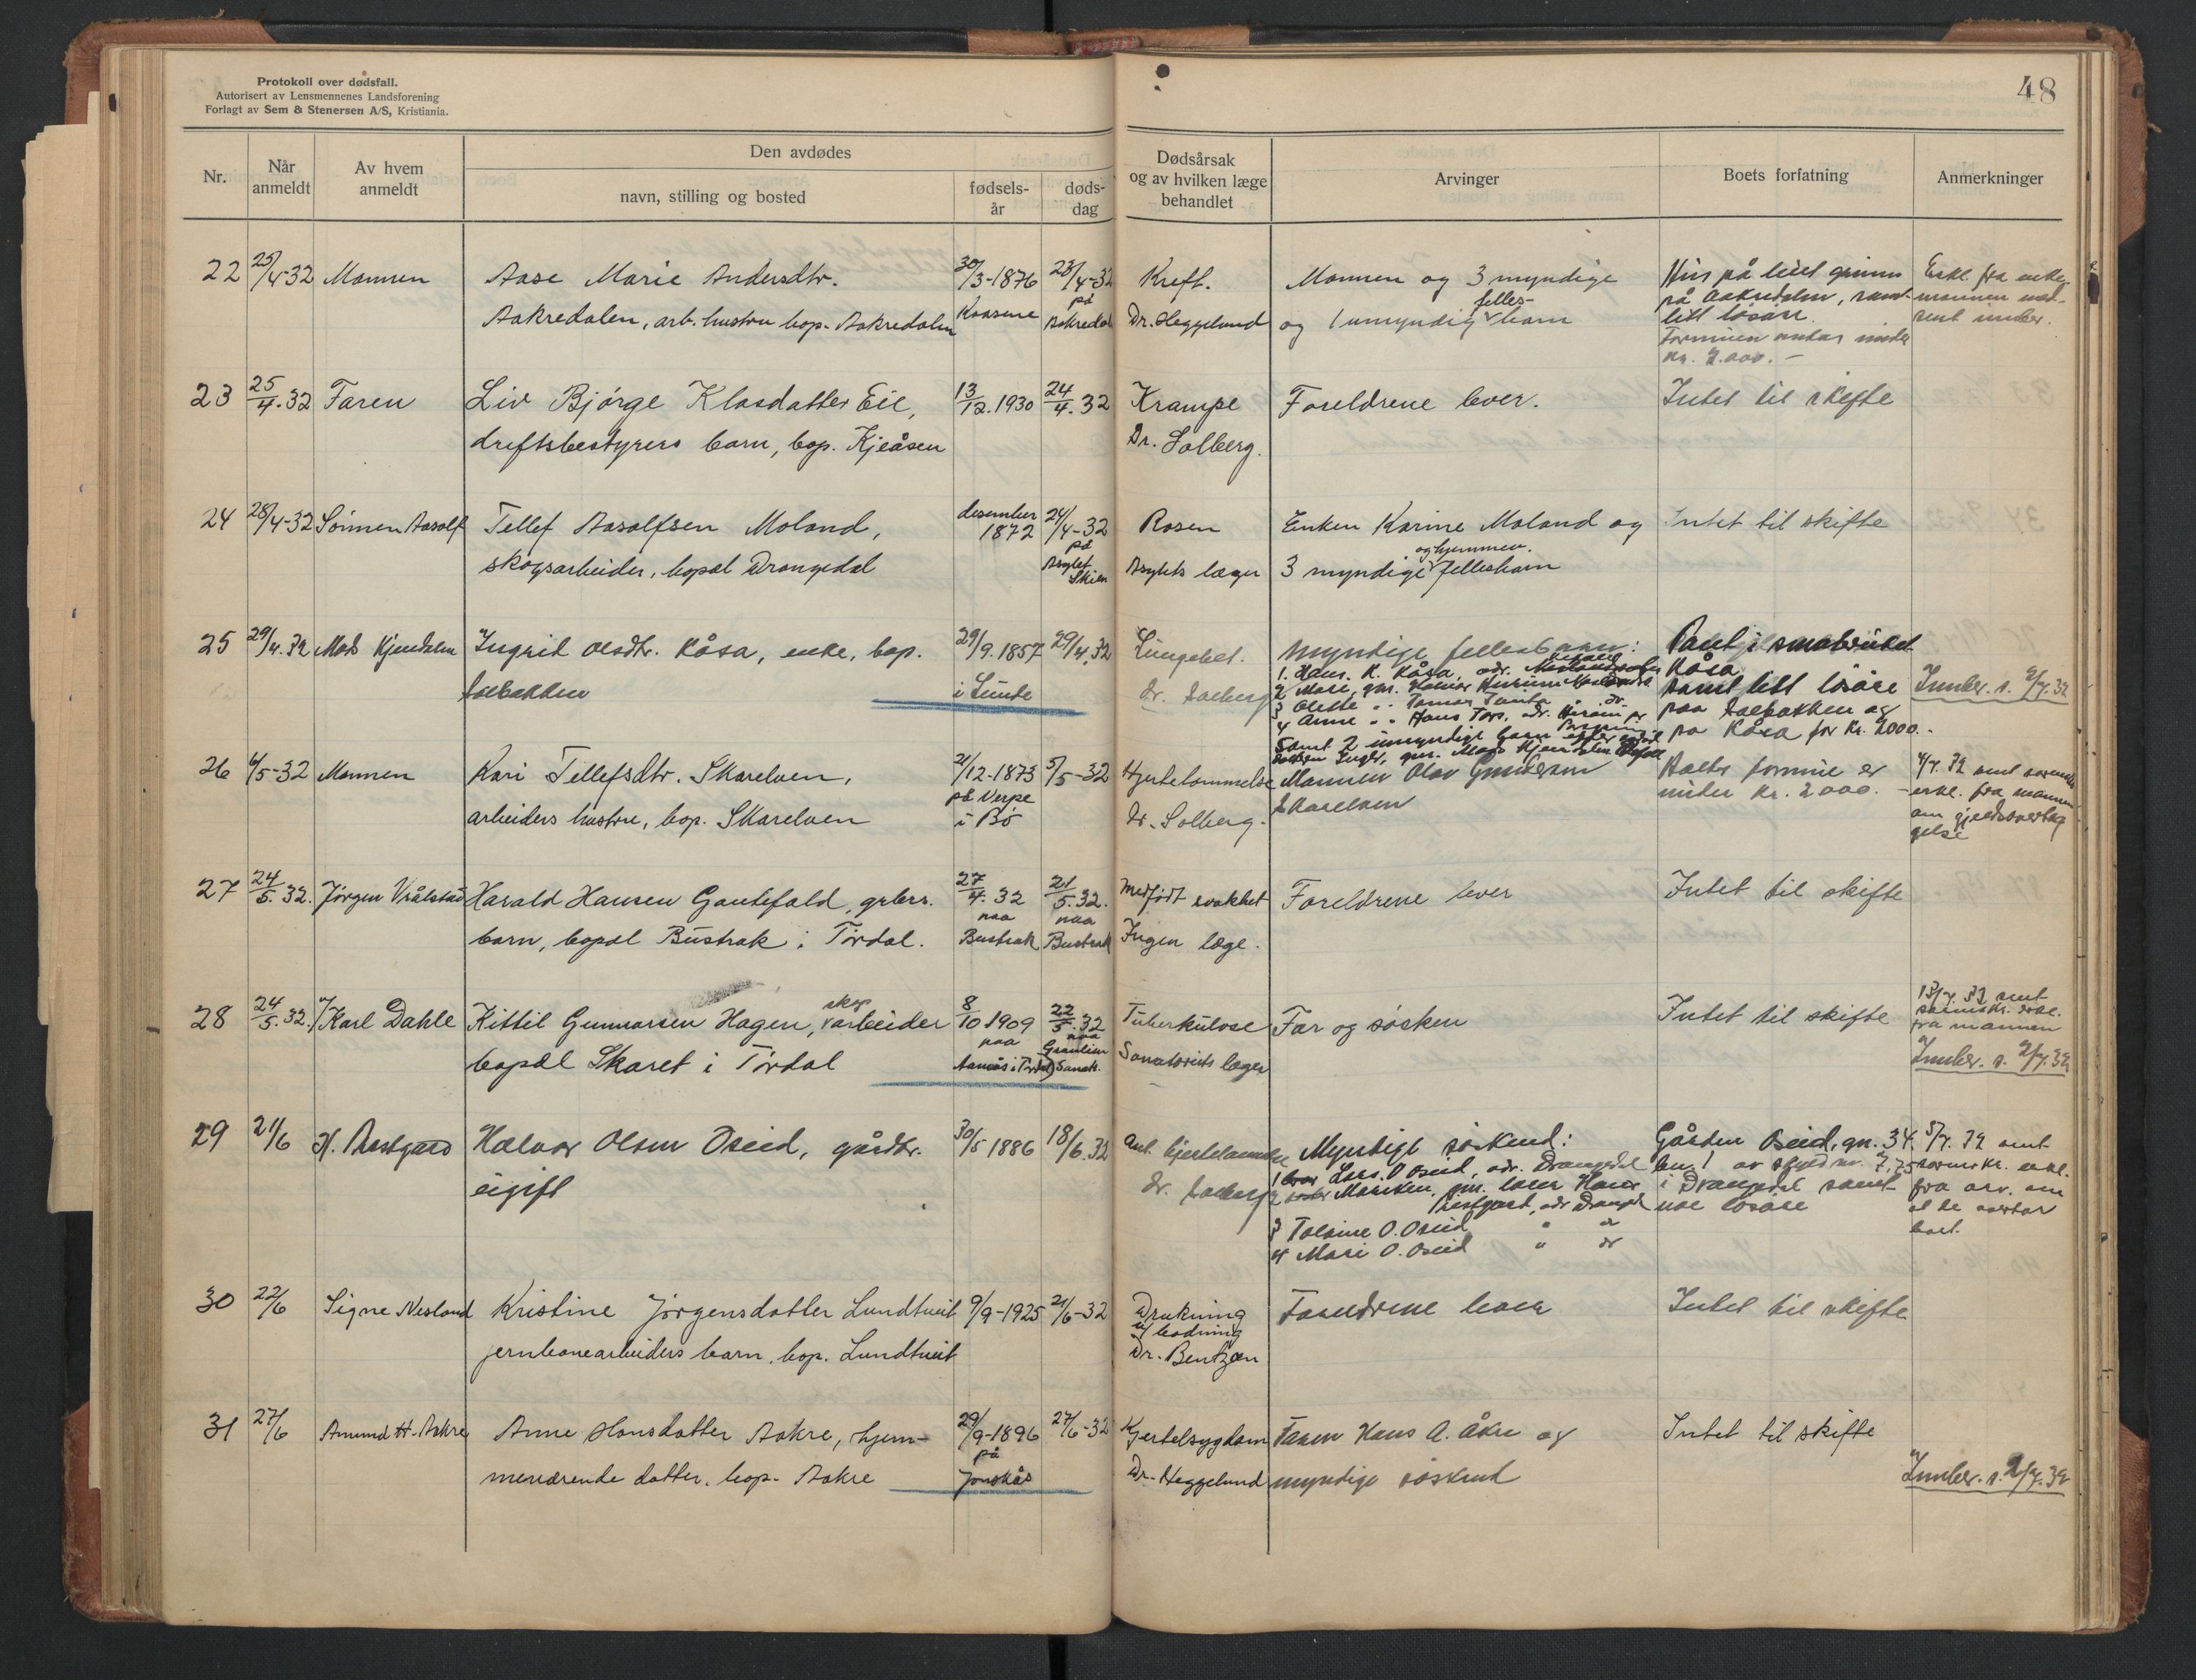 Protokoll over dødsfall.
Autorisert av Lensmennenes Landsforening
Forlagt av Sem & Stenersen A/S, Kristiania.
48
Nr.
Når anmeldt
Av hvem anmeldt
Den avdødes
navn, stilling og bosted
fødsels-år
døds-dag
Dødsårsak og av hvilken læge behandlet
Arvinger
Boets forfatning
Anmerkninger
22 25/4-32 Mannen Aase Marie Andersdtr. 30/3-1876 23/4-32 Kreft. Mannen og 3 myndige Hus på leiet grunn Erkl. fra enke-
Aakredalen, arb. hustru bop. Aakredalen på Dr. Heggelund og 1 umyndig felles- barn på Aakredalen, samt mannen
litt løsøre.
Formuen antas under
kr. 2.000.-
23 25/4.32 Faren Liv Bjørge Klasdatter Eie, 13/12.1930 24/4.32 Krampe Foreldrene lever. Intet til skifte
driftsbestyrers barn, bop. Kjeåsen Dr. Solberg.
24 28/4-32 Sønnen Aasolf Tellef Aasolfsen Moland, desember 1872 24/4-32 Rosen Enken Karine Moland og Intet til skifte
skogsarbeider, bopæl Drangedal på Asylet Skien Asylets læger 3 myndige og hjemmev. fellesbarn
25 29/4.32 Mads Kjendalen Ingrid Olsdtr. Kåsa, enke, bop. 29/9.1857 29/4.32 Lungebet. Myndige fellesbarn:
Solbakken i Lunde Dr. Solberg
1. Hans. K. Kåsa, adr.
2 Mari, gm. Halvor
3 Olette
4 Anne " " Hans Tors. adr.
Samt 2 umyndige barn efter
Kåsa
samt litt løsøre
paa Solbakken og
på Kåsa for kr. 2000.-
Innber. s. 2/7.32
26 6/5-32 Mannen Kari Tellefsdtr. Skarelven, 21/12-1873 5/5-32 Hjertelammelse Mannen Olav Gundersen Boets formue er 4/7. 32 sent
arbeiders hustru, bop. Skarelven på Verpe i Bø Dr. Solberg. Skarelven under kr. 2000.- erkl. fra mannen
om gjeldsovertagelse
27 24/5.32. Jørgen Vrålstad Harald Hansen Gautefald, grbrs. 27/4.32 21/5.32. Medfødt svakhet Foreldrene lever Intet til skifte
barn, bopæl Bustrak i Tørdal. paa Bustrak paa Bustrak Ingen læge.
28 24/5.32. Karl Dahle Kittil Gunnarsen Hagen, skogsarbeider 8/10 1909 22/5.32 Tuberkulose Far og søsken Intet til skifte 13/7. 32 sent
bopæl Skaret i Tørdal paa i Tørdal paa Granlien Sanat. Sanatoriets læger
fra mannen
Innber. s. 2/7.32
29 21/6 H. Prestgard Halvor Olsen Oseid, gårdbr. 30/5 1886 18/6.32 Ant. hjertelammelse Myndige søskend: Gården Oseid, gn. 34. 5/7. 32 sent
ugift Dr. Solberg 1 bror Lars. O Oseid, adr. Drangedal bn. 1 av skyld m. 7,75
2 søster Mariken, gm. Prestgard, adr Drangedal i Drangedal samt fra arv. om
noe løsøre at de overtar
3 Toleine O. Oseid " "
4 Mari O. Oseid " " boet.
30 22/6 Signe Nesland Kristine Jørgensdatter Lundtveit 9/9-1925 21/6-32 Drukning Foreldrene lever Intet til skifte
jernbanearbeiders barn, bop. Lundtveit u/ badning
Dr. Bentzen
31 27/6 Amund H. Aakre Anne Hansdatter Aakre, hjem- 29/9-1896 27/6-32 Hjertesygdom Faren Hans A. Åkre og Intet til skifte
meværende datter, bop. Aakre på Jonskås Dr. Heggelund myndige søskend
Innber. s. 2/7.32